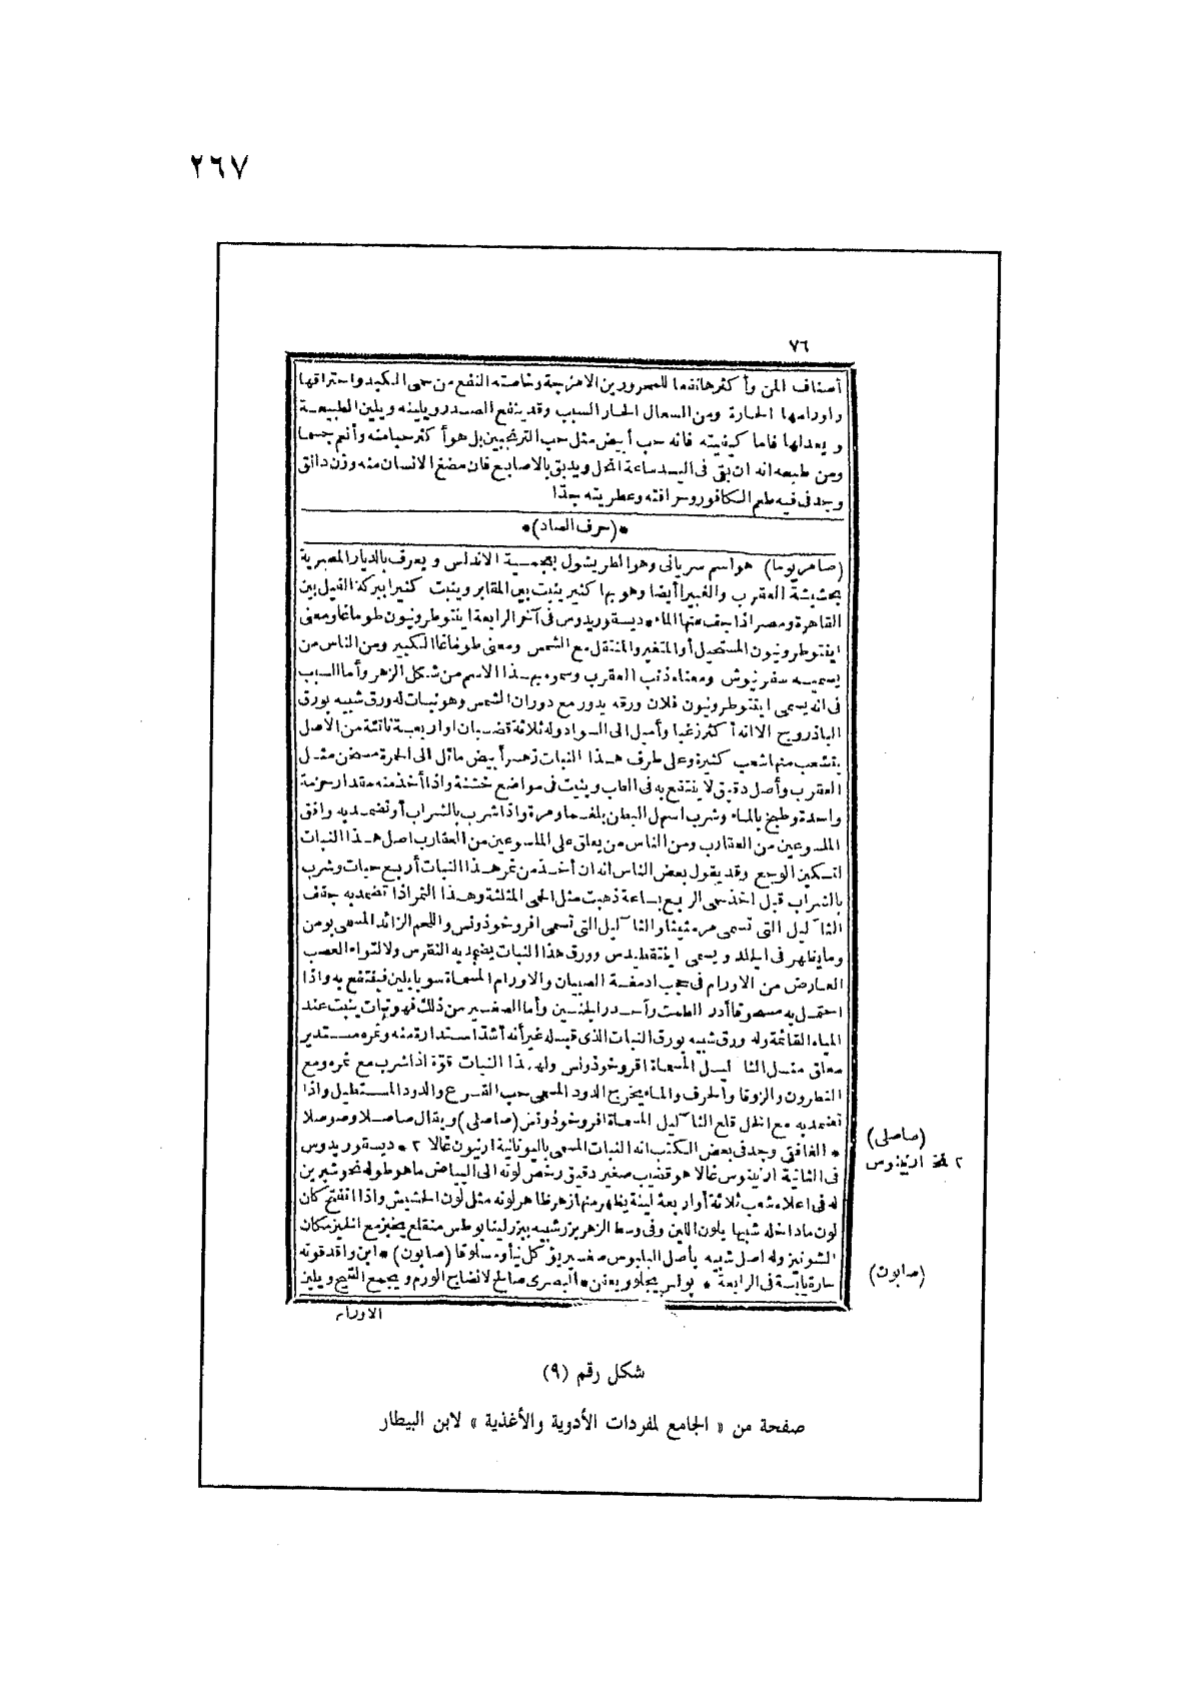 ٢٦٧
٧٦
أصناف المن وأكثرها نفعا للمحرورين الامزجة وخاصته النفع من حمى الكبد واحتراقها
واورامها الحارة ومن السعال الحار السبب وقد ينفع الصدر ويلينه ويلين الطبيعة
ويعدلها فاما كيفيته فانه حب أبيض مثل حب الترنجبين بل هو أكثر حبا منه وأنعم جسما
ومن طبعه انه ان بقى فى اليد ساعة انحل ويدبق بالاصابع فان مضغ الانسان منه وزن دانق
وجد فى فيه طعم الكافور وحرافته وعطريته جدّا
*(حرف الصاد)*
(صامريوما) هو اسم سريانى وهو الطرنشول بعجمية الاندلس ويعرف بالديار المصرية
بحشيشة العقرب والغبيرا أيضا وهو بها كثير ينبت بين المقابر وينبت كثيرا ببركة الفيل بين
القاهرة ومصر اذا جف عنها الماء * ديسقوريدوس فى آخر الرابعة ايليوطروبيون طوماغا ومعنى
ايليوطروبيون المستحيل أو المتغير والمنتقل مع الشمس ومعنى طوماغا الكبير ومن الناس من
يسميه سقرنيوش ومعناه ذنب العقرب وسموه بهذا الاسم من شكل الزهر وأما السبب
فى انه يسمى ايليوطروبيون فلان ورقه يدور مع دوران الشمس وهو نبات له ورق شبيه بورق
الباذروج الا انه أكثر زغبا وأميل الى السواد وله ثلاثة قضبان او اربعة ناتئة من الاصل
يتشعب منها شعب كثيرة وعلى طرف هذا النبات زهر أبيض مائل الى الحمرة منحن مثل
العقرب وأصل دقيق لا ينتفع به فى الطب وينبت فى مواضع خشنة واذا أخذ منه مقدار حزمة
واحدة وطبخ بالماء وشرب اسهل البطن بلغما ومرة واذا شرب بالشراب أو تضمد به وافق
الملسوعين من العقارب ومن الناس من يعلق على الملسوعين من العقارب اصل هذا النبات
لتسكين الوجع وقد يقول بعض الناس انه ان أخذ من ثمر هذا النبات أربع حبات وشرب
بالشراب قبل اخذ حمى الربع بساعة ذهبت مثل الحمى المثلثة وهذا الثمر اذا تضمد به جفف
الثآليل التى تسمى مرميقيا والثآليل التى تسمى افروخوذونس واللحم الزائد المسمى بومن
وما يظهر فى الجلد ويسمى وورق هذا النبات يضمد به النقرس ولالتواء العصب
العارض من الاورام فى حجب ادمغة الصبيان والاورام المسماة فينتفع به واذا
احتمل به مسحوقا أدر الطمث وأحدر الجنين وأما الصغير من ذلك فهو نبات ينبت عند
المياه القائمة وله ورق شبيه بورق النبات الذى قبله غير أنه أشد استدارة منه وثمره مستدير
معلق مثل الثآليل المسماة افروخوذونس ولهذا النبات قوّة اذا شرب مع ثمره ومع
النطرون والزوفا والحرف والماء يخرج الدود المسمى حب القرع والدود المستطيل واذا
تضمد به مع الخل قلع الثآليل المسماة افروخوذونس (صاصلى) ويقال صاصلا وصوصلا
* الغافقى وجد فى بعض الكتب انه النبات المسمى باليونانية ارنيون غالا ٢ * ديسقوريدوس
فى الثانية ارنيوس غالا هو قضيب صغير دقيق رخص لونه الى البياض ما هو طوله نحو شبرين
له فى اعلاه شعب ثلاثة أو اربعة لينة يظهر منها زهر ظاهر لونه مثل لون الحشيش واذا انفتح كان
لون ما داخله شبيها بلون اللبن وفى وسط الزهر بزر شبيه ببزر لينابوطس منقلع يخبز مع الخبز مكان
الشونيز وله اصل شبيه بأصل البلبوس صغير يؤكل نيأ ومسلوقا (صابون) * ابن واقد قوته
حارة يابسة فى الرابعة * بولس يجلو ويعفن * البصرى صالح لانضاج الورم ويجمع القيح ويلين
الاورام
(صاصلى)
٢ نخ ارنينوس
(صابون)
شكل رقم (٩)
صفحة من « الجامع لمفردات الأدوية والأغذية » لابن البيطار